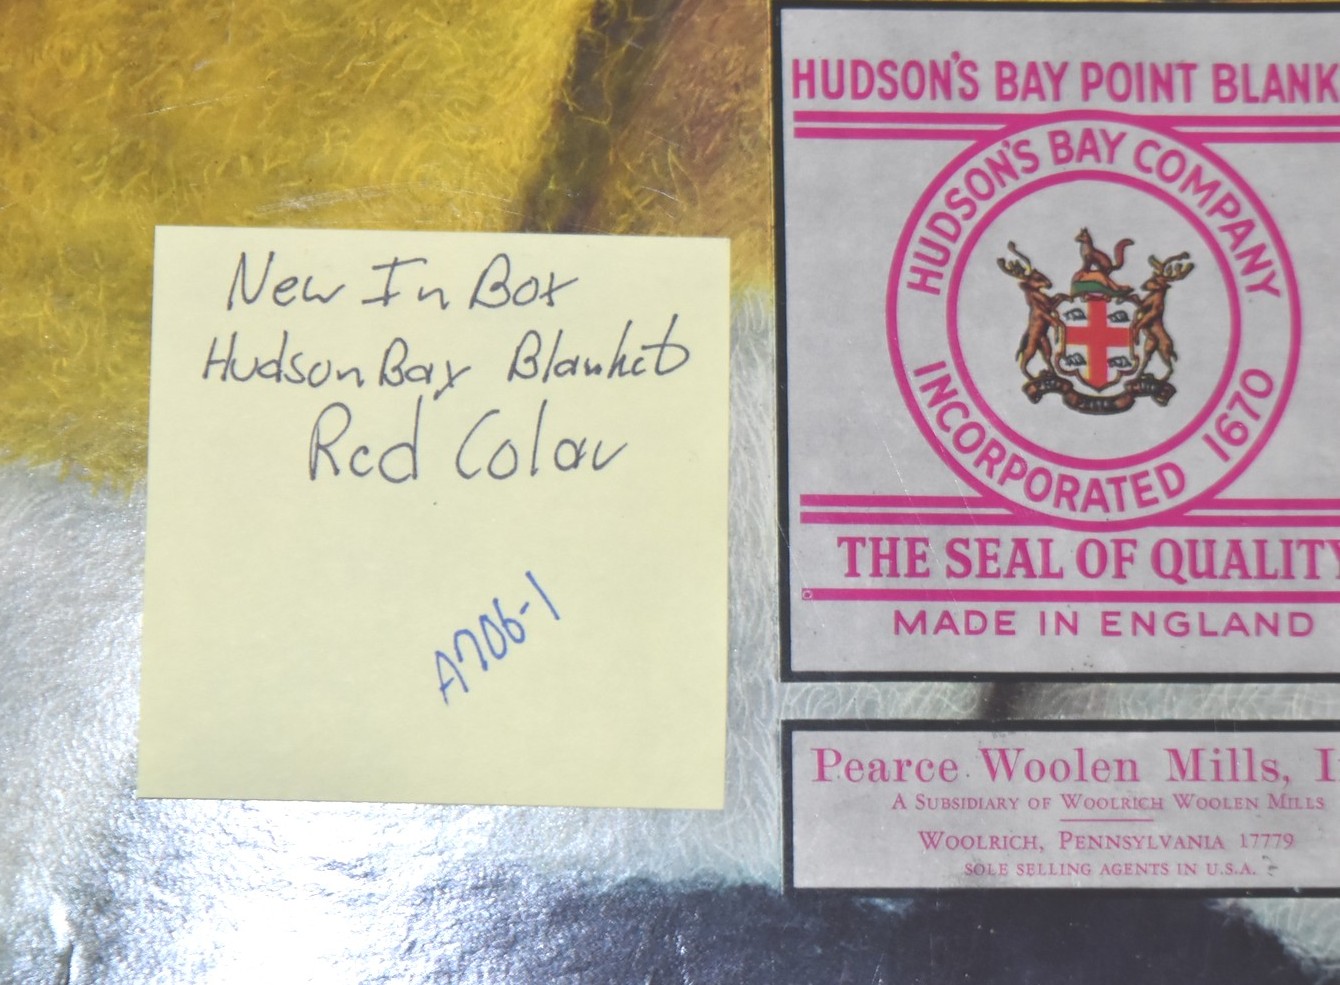 New In Box
Hudson Bay Blanket
Red Color
A706-1
HUDSON'S BAY POINT BLANK
HUDSON'S BAY COMPANY
INCORPORATED 1670
THE SEAL OF QUALITY
MADE IN ENGLAND
Pearce Woolen Mills, I
A SUBSIDIARY OF WOOLRICH WOOLEN MILLS
WOOLRICH, PENNSYLVANIA 17779
SOLE SELLING AGENTS IN U.S.A.